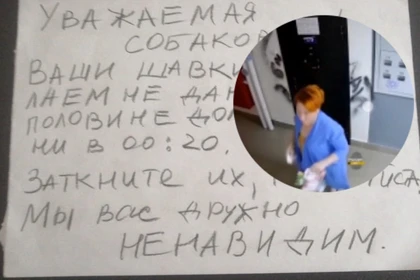 УВАЖАЕМАЯ
СОБАКОВ
ВАШИ ШАВКИ
ЛАЕМ НЕ ДА
ПОЛОВИНЕ ДО
НИ В 00:20.
ЗАТКНИТЕ ИХ,
МЫ ВАС ДРУЖНО
НЕНАВИДИМ.